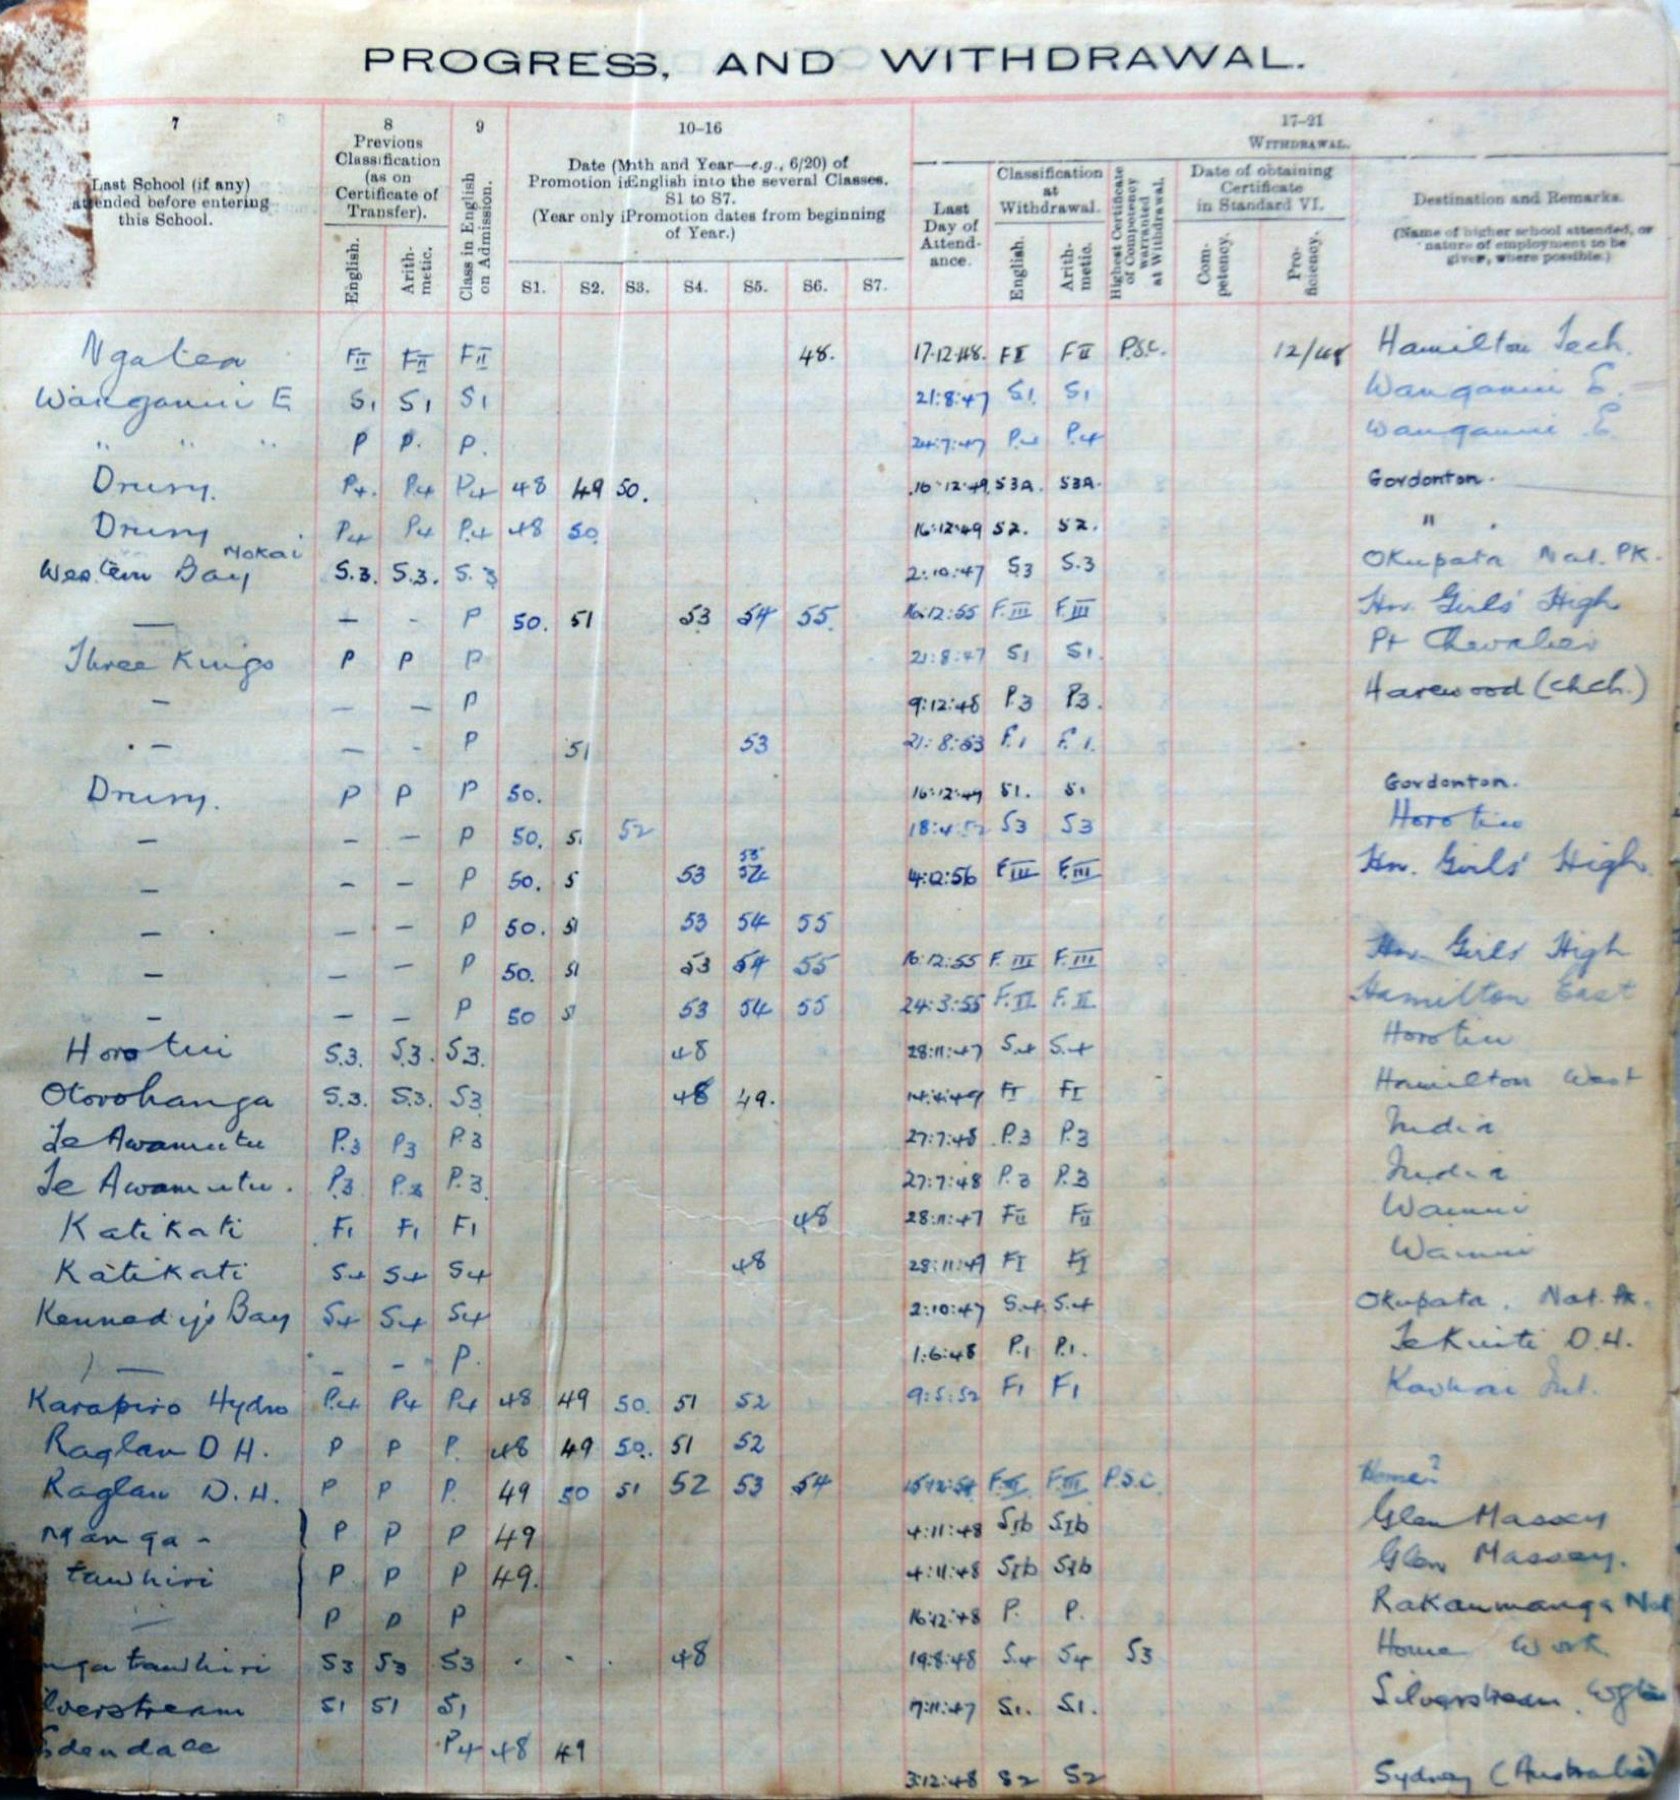 PROGRESS, AND WITHDRAWAL.
7
8
9
10–16
17–21
Last School (if any) attended before entering this School.
Previous Classification (as on Certificate of Transfer).
English.
Arithmetic.
Class in English on Admission.
Date (Mnth and Year—e.g., 6/20) of Promotion in English into the several Classes. S1 to S7. (Year only if Promotion dates from beginning of Year.)
S1. S2. S3. S4. S5. S6. S7.
WITHDRAWAL.
Last Day of Attendance.
Classification at Withdrawal.
English.
Arithmetic.
Highest Certificate of Competency warranted at Withdrawal.
Date of obtaining Certificate in Standard VI.
Competency.
Proficiency.
Destination and Remarks.
(Name of higher school attended, or nature of employment to be given, where possible.)
Ngatea FII FII FII 48. 17.12.48. FII P.S.C. 12/48 Hamilton Tech.
Wanganui E S1 S1 S1 21:8:47 S1. S1 Wanganui E.
" " " P P. P. 24:7:47 P.4 P.4 Wanganui E
Drury. P4. P4 P4 48 49 50. 16:12:49 S3A. S3A. Gordonton.
Drury P4 P4 P.4 48 50. 16:12:49 S2. S2. " .
Western Bay Mokai S.3. S.3. S.3 2:10:47 S3 S.3 Okupata Nat. PK.
— — - P 50. 51 53 54 55. 16:12:55 F.III F.III Hn. Girls' High
Three Kings P P P 21:8:47 S1 S1. Pt Chevalier
— — — P 9:12:48 P.3 P3. Harewood (Chch.)
. — — - P 51 53 21:8:53 F.1 F.1.
Drury. P P P 50. 16:12:49 S1. S1 Gordonton.
— — — P 50. 51 52 18:4:52 S3 S3 Horotiu
— — — P 50. 5 53 55 4:12:56 FIII F.III Hn. Girls' High
— — — P 50. 51 53 54 55
— — — P 50. 51 53 54 55 16:12:55 F.III F.III Hn. Girls High
— — — P 50 51 53 54 55 24:3:55 F.II F.II Hamilton East
Horotiu S.3. S.3. S3. 48 28:11:47 S.4 S.4 Horotiu
Otorohanga S.3. S.3. S3 48 49. FI FI Hamilton West
Te Awamutu P.3 P3 P.3 27:7:48 P.3 P.3 India
Te Awamutu. P3 P.3 P.3. 27:7:48 P.3 P.3 India
Katikati F1 F1 F1 48 28:11:47 FII FII Wainui
Katikati S4 S4 S4 48 28:11:49 FI FI Wainui
Kennedy's Bay S4 S4 S4 2:10:47 S.4 S.4 Okupata, Nat. Pk.
— - - P. 1:6:48 P.1 P.1. Te Kuiti D.H.
Karapiro Hydro P.4 P4 P4 48 49 50. 51 52 9:5:52 F1 F1
Raglan D H. P P P. 48 49 50. 51 52
Raglan D.H. P P P. 49 50 51 52 53 54 15:12:54 F.III F.III P.S.C. Home?
Manga- P P P 49 4:11:48 SIb SIb Glen Massey
tawhiri P P P 49. 4:11:48 SIb SIb Glen Massey.
— P P P 16:12:48 P. P. Rakaumanga Nat
nga tawhiri S3 S3 S3 . . . 48 19:8:48 S.4 S4 S3 Home Work
lverstream S1 S1 S1 7:11:47 S1. S1. Silverstream. Wgtn
dendale P4 48 49
3:12:48 S2 S2 Sydney (Australia)